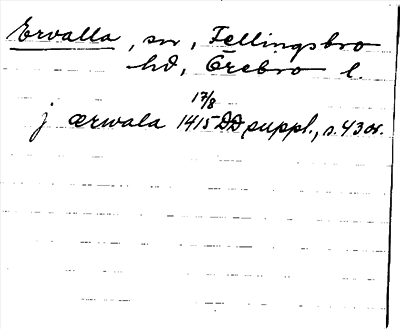 Ervalla, sn, Fellingsbro
hd, Örebro l.
17/8
j ærwala 1415 DD suppl., s. 43 or.